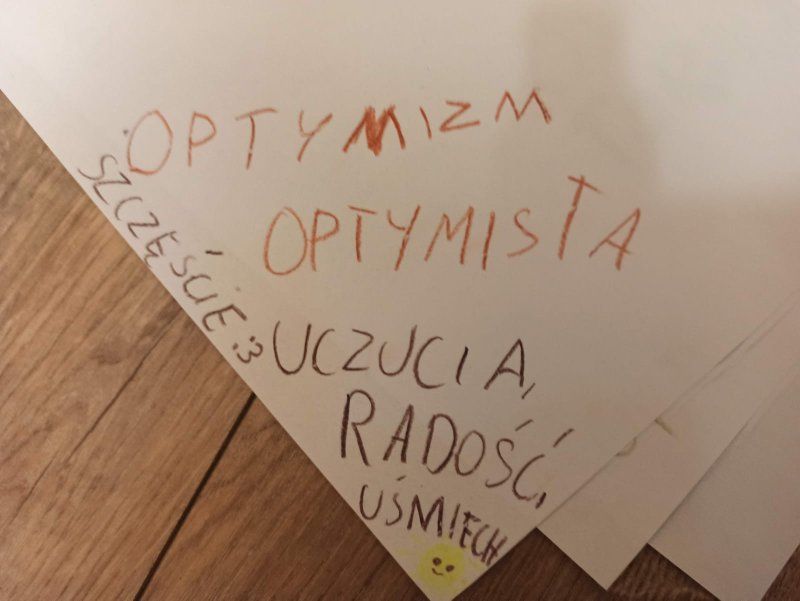 OPTYMIZM
OPTYMISTA
SZCZĘŚCIE :3
UCZUCIA,
RADOŚĆ,
UŚMIECH